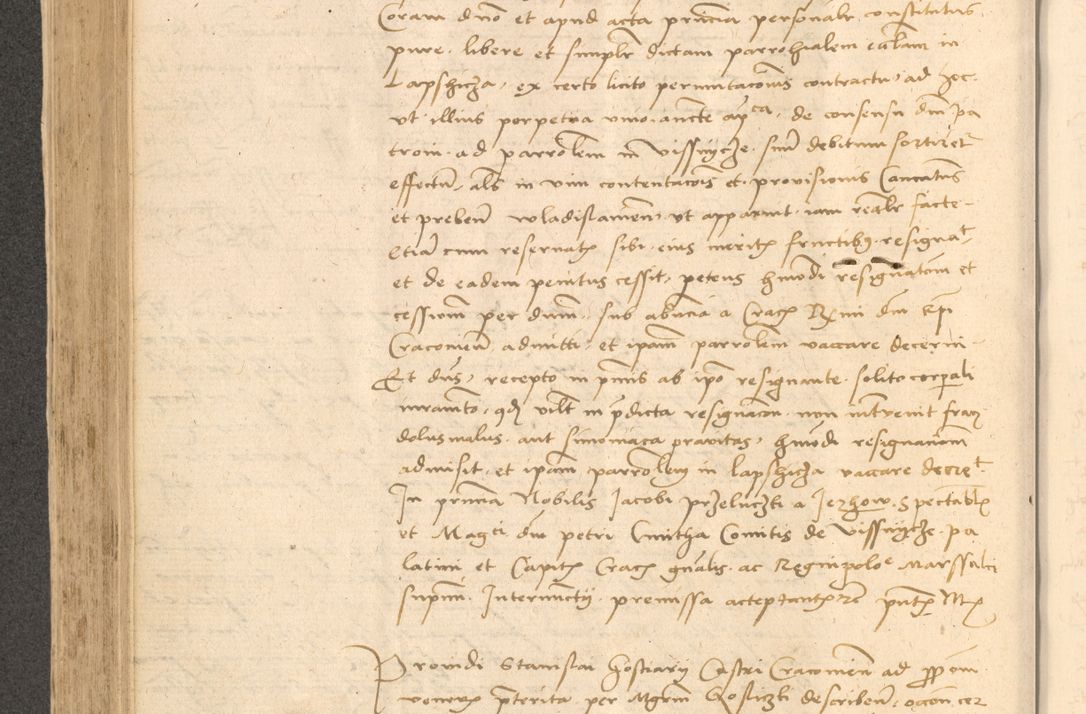 Coram dno et apud acta prncia personalr constitutus
pure libere et simplr dictam parrohialem ecclam in
Lapshicza, ex certo licito permutaconis contractu, ad hoc
ut illius perpetua unio ancte apca, de consensu dni pa
troni ad parrolem in Vissnycze sum debitum sortiret
effectum, als in vim contentacois et provisionis Canicatus
et preben wladislavien, ut apparuit iam realr facte
etia cum reservatx sibi eius meritx fructibus resignat
et de eadem penitus cessit, petens hmodi resignatom et
cessionm per dnum sub abncia a Crac Rmi dni Epi
Cracovien admitti et ipam parrolem vaccare decerni
Et dns, recepto in pmis ab ipo resignante solito corporali
iuramto, qd vilt in pdicta resignacon non intrvenit fraus
dolus malus aut simoniaca pravitas, hmodi resignacionem
admisit, et ipam parrolem in lapshicza vaccare decret
In prncia Nobilis Jacobi przeluczki a Jezhow Spectablx
et Magci dni petri Cmitha Comitis de Vissnycze pa
latini et Capitx Crac gnalis ac Regni poloe Marssalci
supmi Internuncty premissa acceptantx etc pntx Mx
Providi Stanislai hostiary Castri Cracovien ad
veneris pterita per Mgrm describen